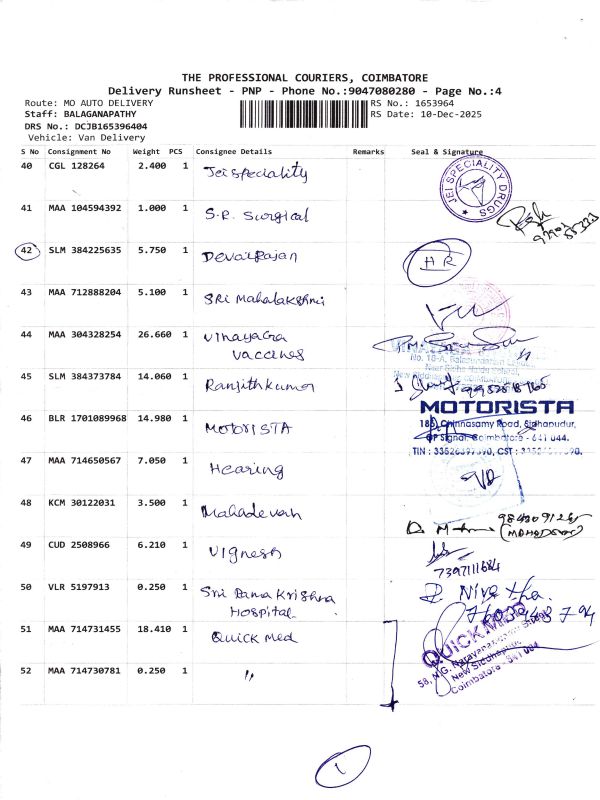 THE PROFESSIONAL COURIERS, COIMBATORE
Delivery Runsheet - PNP - Phone No.:9047080280 - Page No.:4
Route: MO AUTO DELIVERY RS No.: 1653964
Staff: BALAGANAPATHY RS Date: 10-Dec-2025
DRS No.: DCJB165396404
Vehicle: Van Delivery
S No Consignment No Weight PCS Consignee Details Remarks Seal & Signature
40 CGL 128264 2.400 1 Jei speciality
JEI SPECIALITY DRUGS
41 MAA 104594392 1.000 1 S.P. Surgical
42 SLM 384225635 5.750 1 Devarajan HR
43 MAA 712888204 5.100 1 SRi Mahalakshmi
44 MAA 304328254 26.660 1 Vinayaga
vaccines
45 SLM 384373784 14.060 1 Ranjithkumar
46 BLR 1701089968 14.980 1 MOTORISTA
MOTORISTA
185, Chinnasamy Road, Sidhanudur,
Coimbatore - 641 044.
47 MAA 714650567 7.050 1 Hearing
48 KCM 30122031 3.500 1 Mahadevan
49 CUD 2508966 6.210 1 Vignesh
7397111684
50 VLR 5197913 0.250 1 Sri Rama Krishna
Hospital.
51 MAA 714731455 18.410 1 Quick Med
QUICK MED
New Siddhapudur
Coimbatore - 641 044
52 MAA 714730781 0.250 1 "
1